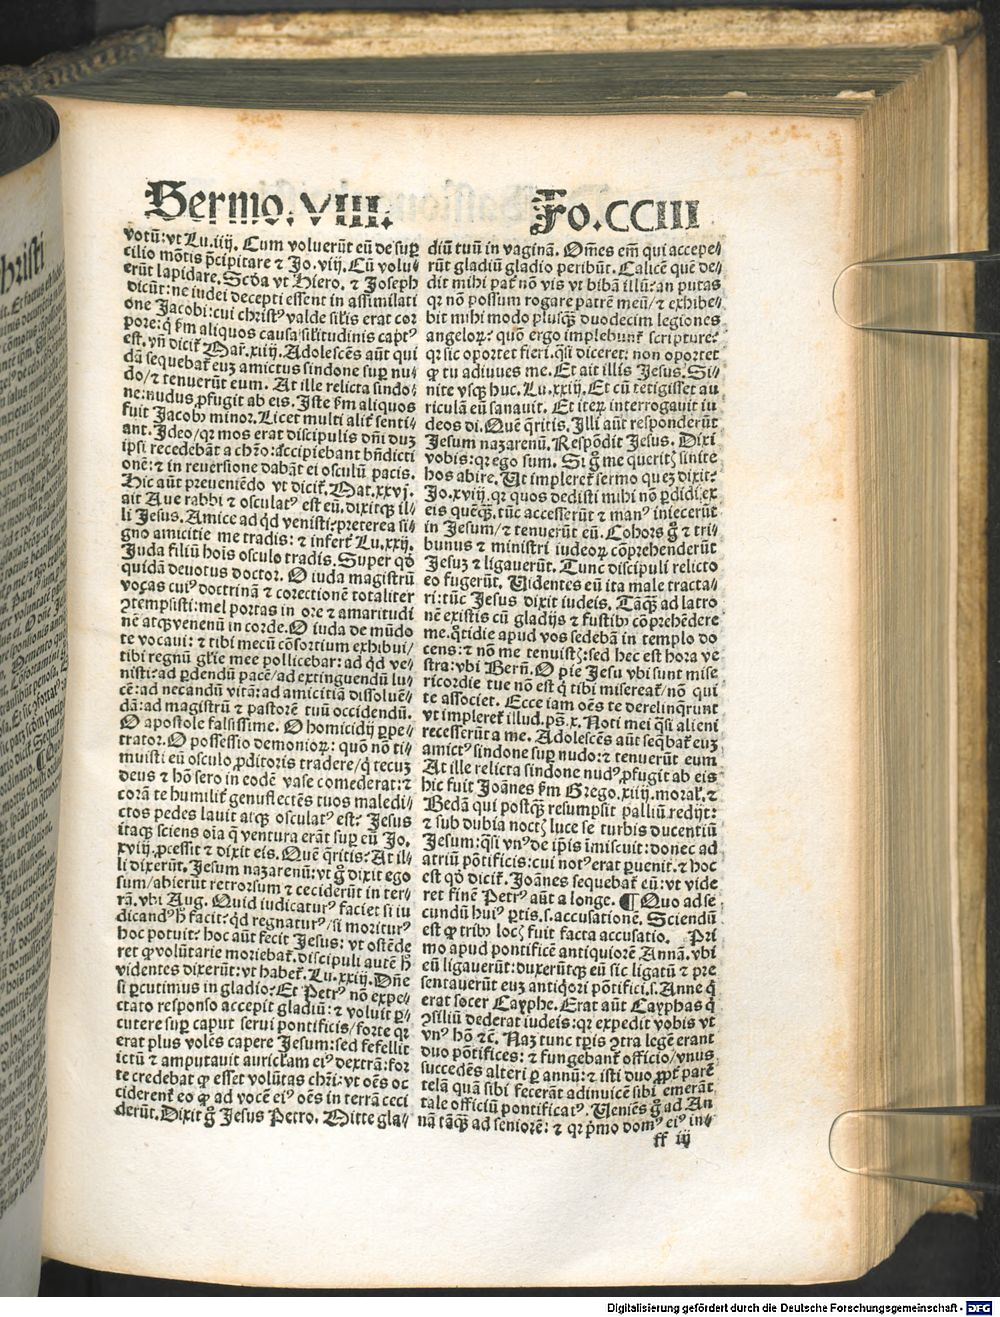 Sermo. VIII.
Fo. CCIII
votū: vt Lu. iiij. Cum voluerūt eū de suꝑ
cilio mōtis p̄cipitare ⁊ Jo. vij. Cū volu⸗
erūt lapidare. Scd̓a vt Hiero. ⁊ Joseph
dicūt: ne iudei decepti essent in assimilati
one Jacobi: cui christꝰ valde sil̓is erat cor
pore: ꝙ s̄m aliquos causa sil̓itudinis captꝰ
est. vn̄ dicit̄ Mar. xiiij. Adolescēs aūt qui
dā sequebat̄ euz amictus sindone suꝑ nu⸗
do/ ⁊ tenuerūt eum. At ille relicta sindo⸗
ne: nudus ꝓfugit ab eis. Iste s̄m aliquos
fuit Jacobꝰ minor. Licet multi alit̄ senti⸗
ant. Ideo/ qꝛ mos erat discipulis dn̄i duz
ipsi recedebāt a chr̄o: accipiebant bn̄dicti
onē: ⁊ in reuersione dabāt ei osculū pacis.
Hic aūt preueniēdo vt dicit̄. Mat. xxvj.
ait Aue rabbi ⁊ osculatꝰ est eū. dixitqꝫ il⸗
li Jesus. Amice ad qd̓ venisti? preterea si⸗
gno amicitie me tradis: ⁊ infert̄ Lu. xxij.
Juda filiū hoīs osculo tradis. Super qd̓
quidā deuotus doctor. O iuda magistrū
vocas cuiꝰ doctrinā ⁊ corectionē totaliter
ꝯtempsisti: mel portas in ore ⁊ amaritudi
nē atqꝫ venenū in corde. O iuda de mūdo
te vocaui: ⁊ tibi mecū cōsortium exhibui/
tibi regnū gl̓ie mee pollicebar: ad qd̓ ve⸗
nisti: ad ꝑdendū pacē/ ad extinguendū lu⸗
cē: ad necandū vitā: ad amicitiā dissoluē⸗
dā: ad magistrū ⁊ pastorē tuū occidendū.
O apostole falsissime. O homicidij ꝑpe⸗
trator. O possessio demonioꝝ: quō nō ti⸗
muisti eū osculo ꝓditoris tradere/ q̄ tecuz
deus ⁊ hō sero in eodē vase comederat: ⁊
corā te humilit̄ genuflectēs tuos maledi⸗
ctos pedes lauit atqꝫ osculatꝰ est? Jesus
itaqꝫ sciens oīa q̄ ventura erāt suꝑ eū Jo.
xviij. ꝓcessit ⁊ dixit eis. Quē q̄ritis? At il⸗
li dixerūt. Jesum nazarenū: vt g̊ dixit ego
sum/ abierūt retrorsum ⁊ ceciderūt in ter⸗
rā. vbi Aug. Quid iudicaturꝰ faciet si iu
dicandꝰ h̓ facit: qd̓ regnaturꝰ/ si moriturꝰ
hoc potuit? hoc aūt fecit Jesus: vt ostēde
ret ꝙ volūtarie moriebat̄. discipuli autē h̓
videntes dixerūt: vt habet̄. Lu. xxiij. Dn̄e
si ꝑcutimus in gladio? Et Petrꝰ nō expe⸗
ctato responso accepit gladiū: ⁊ voluit ꝑ⸗
cutere suꝑ caput serui pontificis/ forte qꝛ
erat plus volēs capere Jesum: sed fefellit
ictū ⁊ amputauit auricl̓am eiꝰ dextrā: for
te credebat ꝙ esset volūtas chr̄i: vt oēs oc
ciderent̄ eo ꝙ ad vocē eiꝰ oēs in terrā ceci
derūt. Dixit g̊ Jesus Petro. Mitte gla⸗
diū tuū in vaginā. Om̄es em̄ qui accepe⸗
rūt gladiū gladio peribūt. Calicē quē de⸗
dit mihi pat̄ nō vis vt bibā illū: an putas
qꝛ nō possum rogare patrē meū/ ⁊ exhibe⸗
bit mihi modo plusqꝫ duodecim legiones
angeloꝝ: quō ergo implebunt̄ scripture?
qꝛ sic oportet fieri. q̄si diceret: non oportet
ꝙ tu adiuues me. Et ait illis Jesus. Si⸗
nite vsqꝫ huc. Lu. xxij. Et cū tetigisset au
riculā eū sanauit. Et iteꝝ interrogauit iu
deos di. Quē q̄ritis. Illi aūt responderūt
Jesum nazarenū. Respōdit Jesus. Dixi
vobis: qꝛ ego sum. Si g̊ me queritꝭ sinite
hos abire. Ut impleret̄ sermo quez dixit?
Jo. xviij. qꝛ quos dedisti mihi nō ꝑdidi ex
eis quēqꝫ. tūc accesserūt ⁊ manꝰ iniecerūt
in Jesum/ ⁊ tenuerūt eū. Cohors g̊ ⁊ tri⸗
bunus ⁊ ministri iudeoꝝ cōprehenderūt
Jesuz ⁊ ligauerūt. Tunc discipuli relicto
eo fugerūt. Uidentes eū ita male tracta⸗
ri: tūc Jesus dixit iudeis. Tāqꝫ ad latro
nē existis cū gladijs ⁊ fustibꝰ cōprehēdere
me. q̄tidie apud vos sedebā in templo do
cens: ⁊ nō me tenuistꝭ: sed hec est hora ve
stra: vbi Bern̄. O pie Jesu vbi sunt mise
ricordie tue nō est q̄ tibi misereat̄/ nō qui
te associet. Ecce iam oēs te derelinq̄runt
vt impleret̄ illud. ps. x. Noti mei q̄si alieni
recesserūt a me. Adolescēs aūt seq̄bat̄ euz
amictꝰ sindone suꝑ nudo: ⁊ tenuerūt eum
At ille relicta sindone nudꝰ ꝓfugit ab eis
hic fuit Joānes s̄m Grego. xiiij. moral̓. ⁊
Bedā qui postqꝫ resumpsit palliū redijt:
⁊ sub dubia noctꝭ luce se turbis ducentiū
Jesum: q̄si vnꝰ de ip̄sis īmiscuit: donec ad
atriū pōtificis: cui notꝰ erat ꝑuenit. ⁊ hoc
est qd̓ dicit̄. Joānes sequebat̄ eū: vt vide
ret finē Petrꝰ aūt a longe. ¶ Quo ad se
cundū huiꝰ ꝑtis. s. accusationē. Sciendū
est ꝙ tribꝰ locꝭ fuit facta accusatio. Pri
mo apud pontificē antiquiorē Annā. vbi
eū ligauerūt: duxerūtqꝫ eū sic ligatū ⁊ pre
sentauerūt euz antiq̄ori pōtifici. s. Anne q̄
erat socer Cayphe. Erat aūt Cayphas q̄
ꝯsiliū dederat iudeis: qꝛ expedit vobis vt
vnꝰ hō ⁊c̄. Naz tunc tꝑis ꝯtra legē erant
duo pōtifices: ⁊ fungebant̄ officio/ vnus
succedēs alteri ꝑ annū: ⁊ isti duo ꝓpt̄ parē
telā quā sibi fecerāt adinuicē sibi emerāt
tale officiū pontificatꝰ. Ueniēs g̊ ad An
nā tāqꝫ ad seniorē: ⁊ qꝛ p̄mo domꝰ eiꝰ in⸗
ff iij
Digitalisierung gefördert durch die Deutsche Forschungsgemeinschaft - DFG